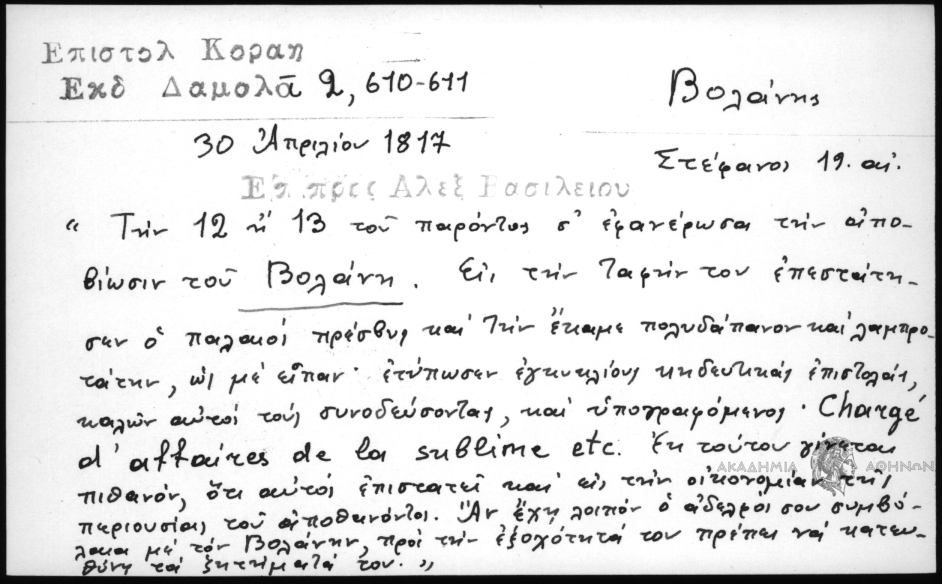 Επιστολ Κοραη
Εκδ Δαμολᾶ 2, 610-611
Βολάνης
30 Ἀπριλίου 1817
Στέφανος 19. αἰ.
Επ προς Αλεξ Βασιλειου
“ Τὴν 12 ἢ 13 τοῦ παρόντος σ' ἐφανέρωσα τὴν ἀπο-
βίωσιν τοῦ Βολάνη. Εἰς τὴν ταφήν του ἐπεστάτη-
σεν ὁ παλαιὸς πρέσβυς καὶ τὴν ἔκαμε πολυδάπανον καὶ λαμπρο-
τάτην, ὡς μὲ εἶπαν· ἐτύπωσεν ἐγκυκλίους κηδευτικὰς ἐπιστολάς,
καλῶν αὐτὸς τοὺς συνοδεύσοντας, καὶ ὑπογραφόμενος· Chargé
d'affaires de la sublime etc. Ἐκ τούτου γίνεται
ΑΚΑΔΗΜΙΑ ΑΘΗΝΩΝ
πιθανόν, ὅτι αὐτὸς ἐπιστατεῖ καὶ εἰς τὴν οἰκονομίαν τῆς
περιουσίας τοῦ ἀποθανόντος. Ἂν ἔχῃ λοιπὸν ὁ ἀδελφός σου συμβό-
λαια μὲ τὸν Βολάνην, πρὸς τὴν ἐξοχότητά του πρέπει νὰ κατευ-
θύνῃ τὰ ζητήματά του. ”